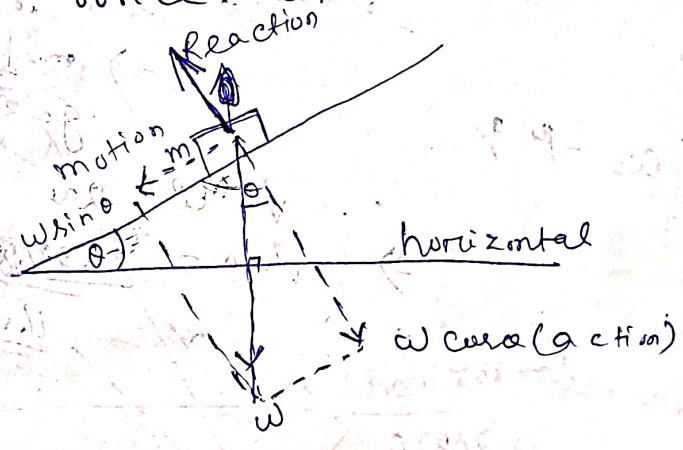 Reaction
motion
m
w sin θ
θ
θ
horizontal
w cosθ (action)
w